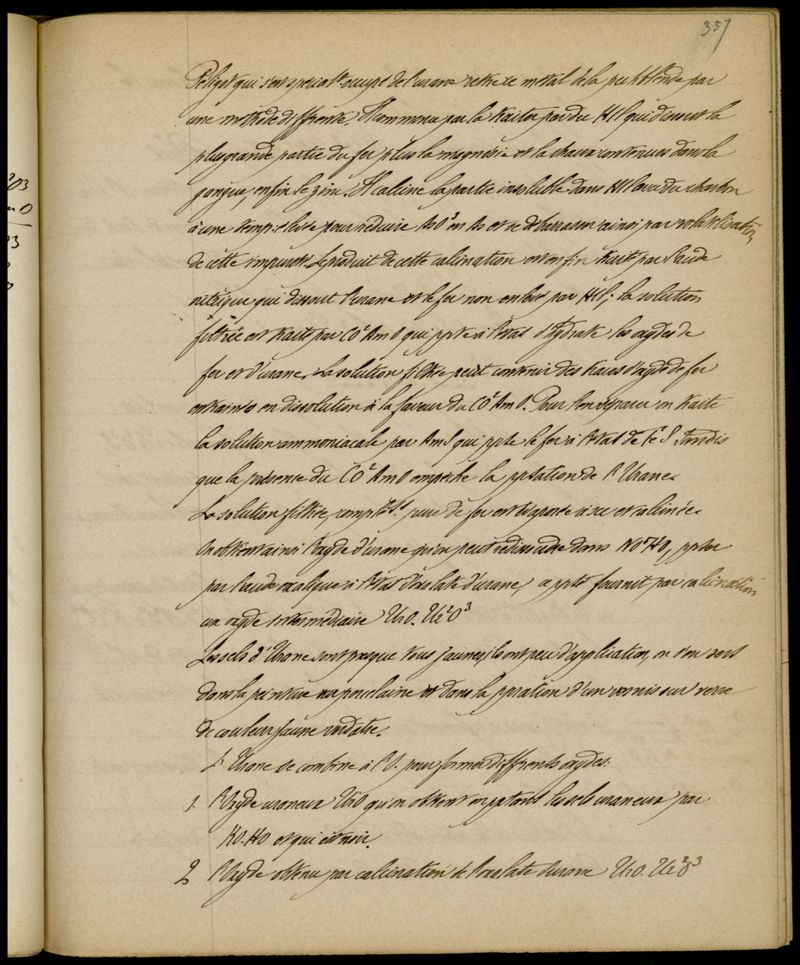 357
Peligot qui s'est spécialt occupé de l'urane retire ce métal de la pechblende par
une méthode différente. Il commence par la traiter par du HCl qui dissout la
plus grande partie du fer plus la magnésie et la chaux contenues dans la
gangue, enfin le zinc. Il calcine la partie insoluble dans HCl avec du charbon
à une tempre élevée pour réduire AsO5 en As et se débarrasser ainsi par volatilisation
de cette impureté. Le produit de cette calcination est enfin traité par l'acide
nitrique qui dissout l'urane et le fer non enlevé par HCl; la solution
filtrée est traitée par CO2AmO qui ppte à l'état d'hydrate les oxydes de
fer et d'urane. La solution filtrée peut contenir des traces d'oxyde de fer
entrainées en dissolution à la faveur du CO2AmO. Pour l'en séparer on traite
la solution ammoniacale par AmS qui ppte le fer à l'état de FeS tandis
que la présence du CO2AmO empêche la pptation de l'Urane.
La solution filtrée, complètt pure de fer est évaporée à sec et calcinée.
On obtient ainsi l'oxyde d'urane qu'on peut redissoudre dans NO5HO, ppter
par l'acide oxalique à l'état d'oxalate d'urane, ce ppté fournit par calcination
un oxyde intermédiaire UrO. Ur2O3
Les sels d'Urane sont presque tous jaunes; ils ont peu d'application, on s'en sert
dans la peinture sur porcelaine et dans la ppration d'un vernis sur verre
de couleur jaune verdâtre.
L'Urane se combine à l'O. pour former différents oxydes:
1. l'Oxyde uraneux UrO qu'on obtient en pptant les sels uraneux par
KO.HO et qui est noir.
2 l'Oxyde obtenu par calcination de l'oxalate d'urane UrO. Ur2O3